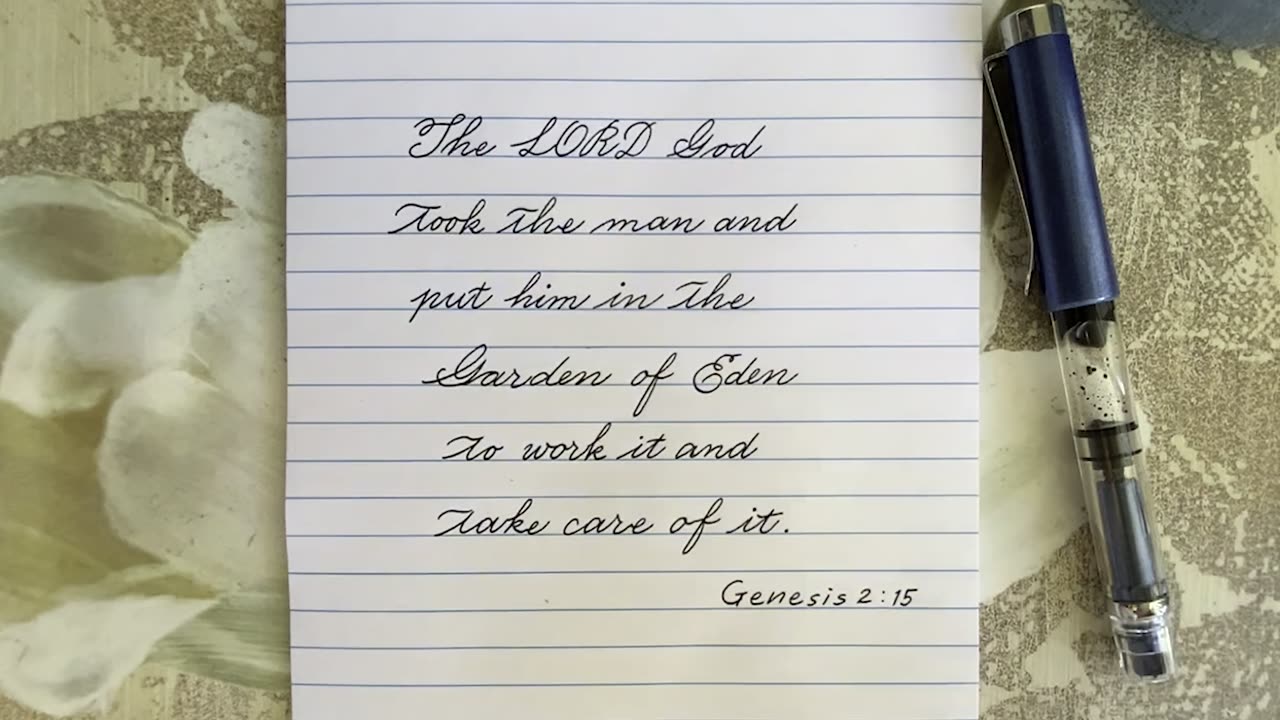 The LORD God
took the man and
put him in the
Garden of Eden
to work it and
take care of it.
Genesis 2:15